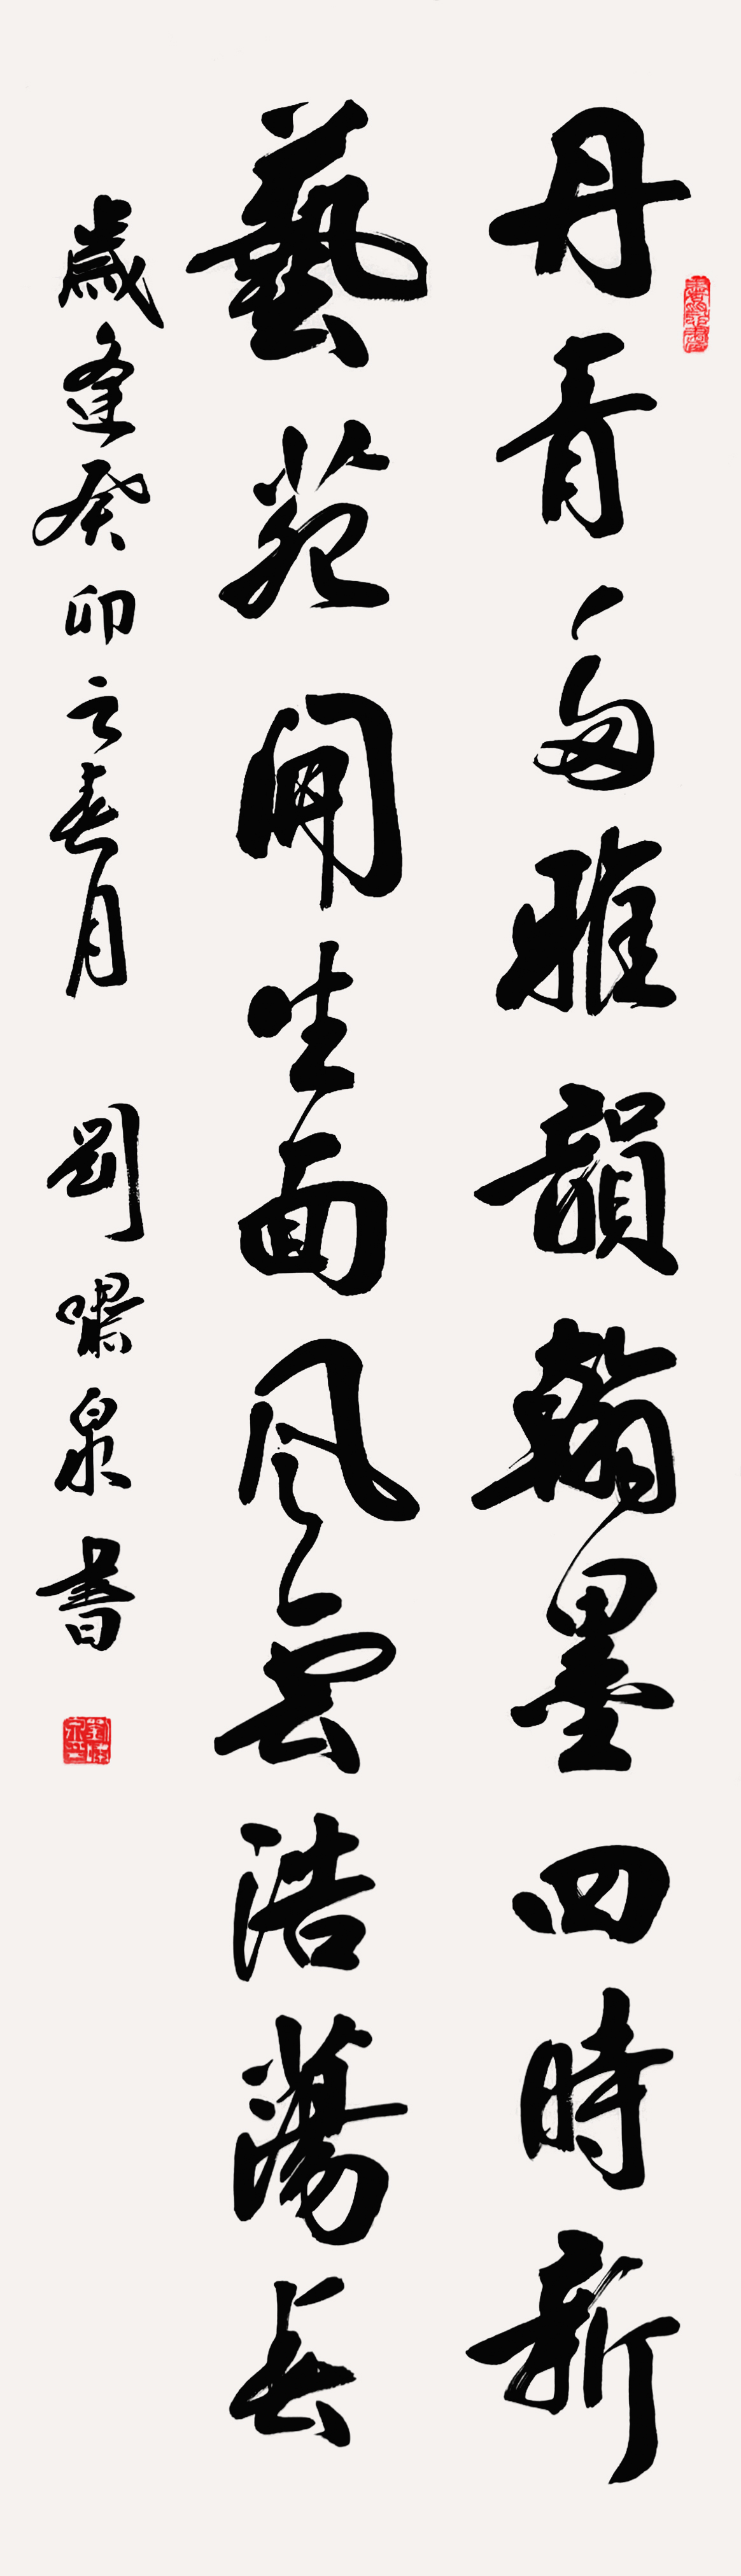 丹青多雅韻翰墨四時新
藝苑開生面風雲浩蕩長
歲逢癸卯之春月 劉嘯泉書